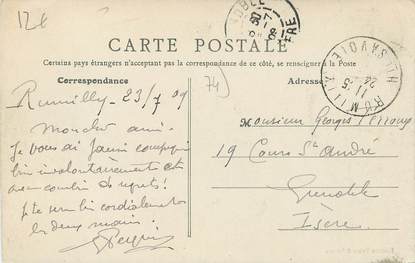 12€
CARTE POSTALE
Certains pays étrangers n'acceptant pas la correspondance de ce côté, se renseigner à la Poste
Correspondance
74)
Adresse
RUMILLY
Hte SAVOIE
Rumilly 23/7 09
Mon cher ami.
Je vous ai
bien involontairement et
avec combien de regrets!
Je te serre bien cordialement
les deux mains.
Monsieur Georges
19 Cours St André
Grenoble
Isère.